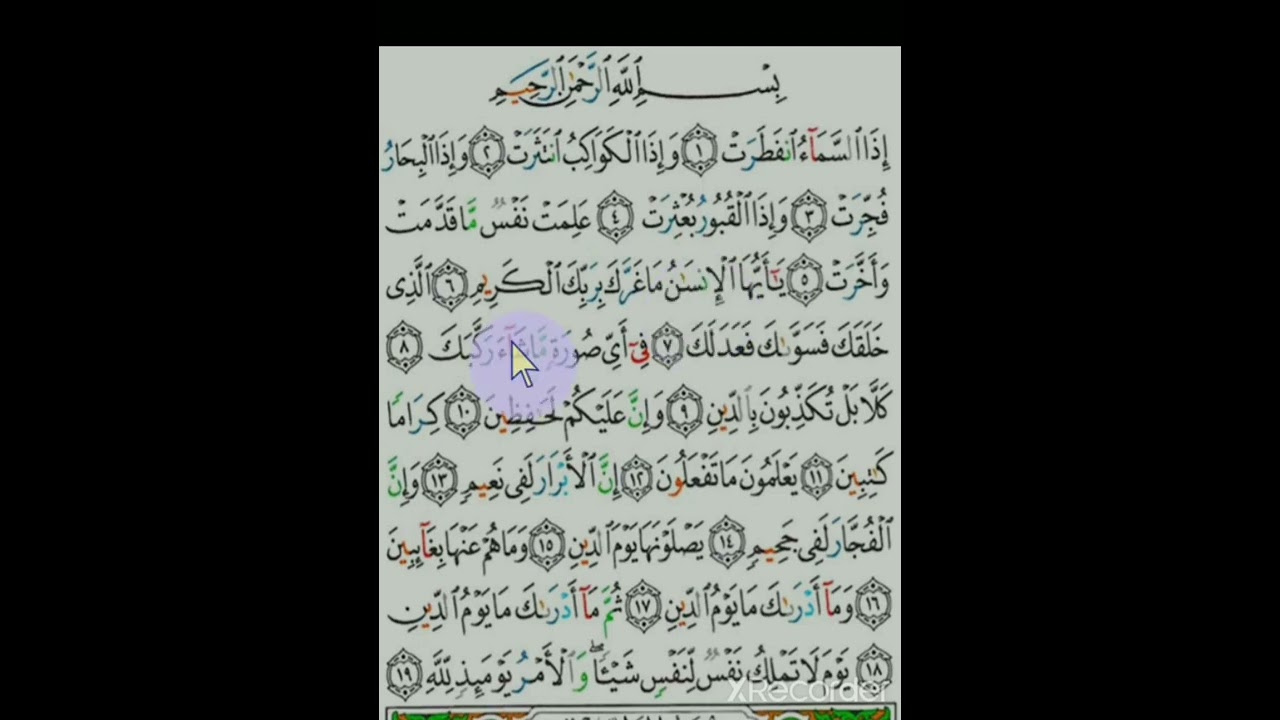 بِسْمِ ٱللَّهِ ٱلرَّحْمَٰنِ ٱلرَّحِيمِ
إِذَا ٱلسَّمَآءُ ٱنفَطَرَتْ ١ وَإِذَا ٱلْكَوَاكِبُ ٱنتَثَرَتْ ٢ وَإِذَا ٱلْبِحَارُ
فُجِّرَتْ ٣ وَإِذَا ٱلْقُبُورُ بُعْثِرَتْ ٤ عَلِمَتْ نَفْسٌ مَّا قَدَّمَتْ
وَأَخَّرَتْ ٥ يَٰٓأَيُّهَا ٱلْإِنسَٰنُ مَا غَرَّكَ بِرَبِّكَ ٱلْكَرِيمِ ٦ ٱلَّذِى
خَلَقَكَ فَسَوَّىٰكَ فَعَدَلَكَ ٧ فِىٓ أَىِّ صُورَةٍ مَّا شَآءَ رَكَّبَكَ ٨
كَلَّا بَلْ تُكَذِّبُونَ بِٱلدِّينِ ٩ وَإِنَّ عَلَيْكُمْ لَحَٰفِظِينَ ١٠ كِرَامًا
كَٰتِبِينَ ١١ يَعْلَمُونَ مَا تَفْعَلُونَ ١٢ إِنَّ ٱلْأَبْرَارَ لَفِى نَعِيمٍ ١٣ وَإِنَّ
ٱلْفُجَّارَ لَفِى جَحِيمٍ ١٤ يَصْلَوْنَهَا يَوْمَ ٱلدِّينِ ١٥ وَمَا هُمْ عَنْهَا بِغَآئِبِينَ
١٦ وَمَآ أَدْرَىٰكَ مَا يَوْمُ ٱلدِّينِ ١٧ ثُمَّ مَآ أَدْرَىٰكَ مَا يَوْمُ ٱلدِّينِ
١٨ يَوْمَ لَا تَمْلِكُ نَفْسٌ لِّنَفْسٍ شَيْـًٔا ۖ وَٱلْأَمْرُ يَوْمَئِذٍ لِّلَّهِ ١٩
XRecorder